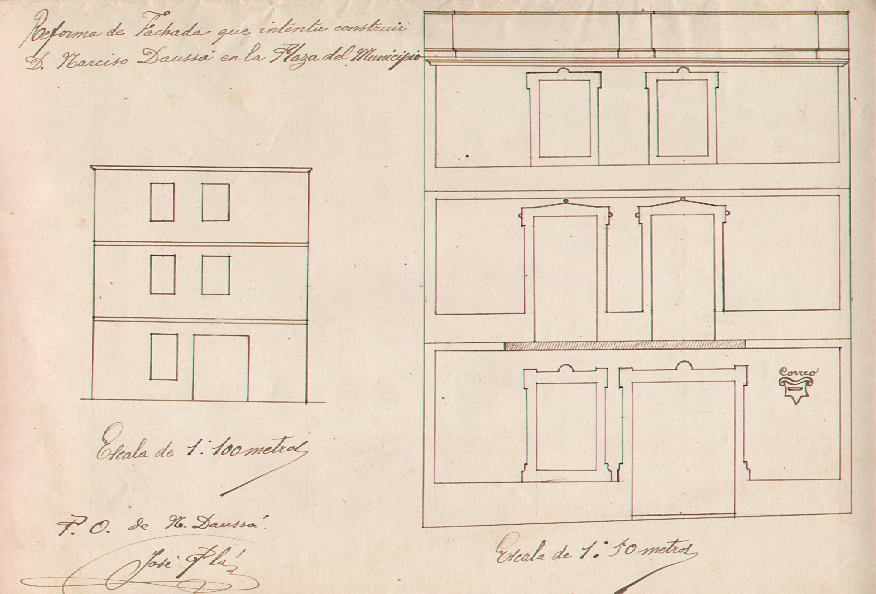 Reforma de Fachada que intenta construir
D. Narciso Daussá en la Plaza del Municipio
Correo
Escala de 1:100 metros
P. O. de N. Daussá.
José Plá
Escala de 1:50 metros